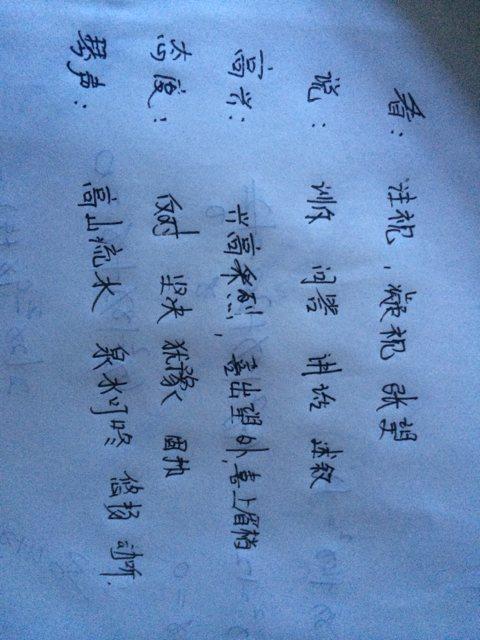 看：注视，凝视 张望
说：训斥 问答 讲话 述叙
高兴：兴高采烈，喜出望外，喜上眉梢
态度：反对 坚决 犹豫 固执
琴声：高山流水 泉水叮咚 悠扬 动听.